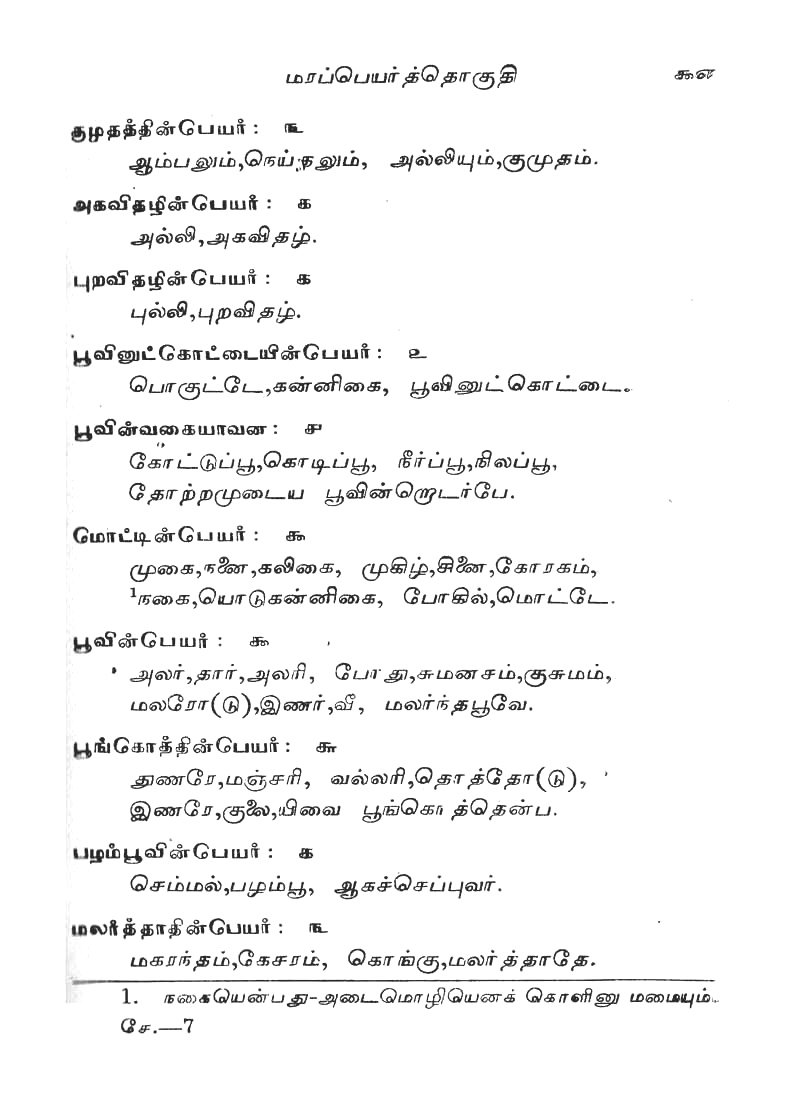 மரப்பெயர்த்தொகுதி ௯௭
குமுதத்தின்பெயர் : ௩
ஆம்பலும்,நெய்தலும், அல்லியும்,குமுதம்.
அகவிதழின்பெயர் : ௧
அல்லி,அகவிதழ்.
புறவிதழின்பெயர் : ௧
புல்லி,புறவிதழ்.
பூவினுட்கொட்டையின்பெயர் : ௨
பொகுட்டே,கன்னிகை, பூவினுட்கொட்டை.
பூவின்வகையாவன : ௪
கோட்டுப்பூ,கொடிப்பூ, நீர்ப்பூ,நிலப்பூ,
தோற்றமுடைய பூவின்றொடர்பே.
மொட்டின்பெயர் : ௯
முகை,நனை,கலிகை, முகிழ்,சினை,கோரகம்,
¹நகை,யொடுகன்னிகை, போகில்,மொட்டே.
பூவின்பெயர் : ௯
அலர்,தார்,அலரி, போது,சுமனசம்,குசுமம்,
மலரோ(டு),இணர்,வீ, மலர்ந்தபூவே.
பூங்கொத்தின்பெயர் : ௬
துணரே,மஞ்சரி, வல்லரி,தொத்தோ(டு),
இணரே,குலை,யிவை பூங்கொத்தென்ப.
பழம்பூவின்பெயர் : ௧
செம்மல்,பழம்பூ, ஆகச்செப்புவர்.
மலர்த்தாதின்பெயர் : ௩
மகரந்தம்,கேசரம், கொங்கு,மலர்த்தாதே.
1. நகையென்பது-அடைமொழியெனக் கொளினு மமையும்.
சே.—7